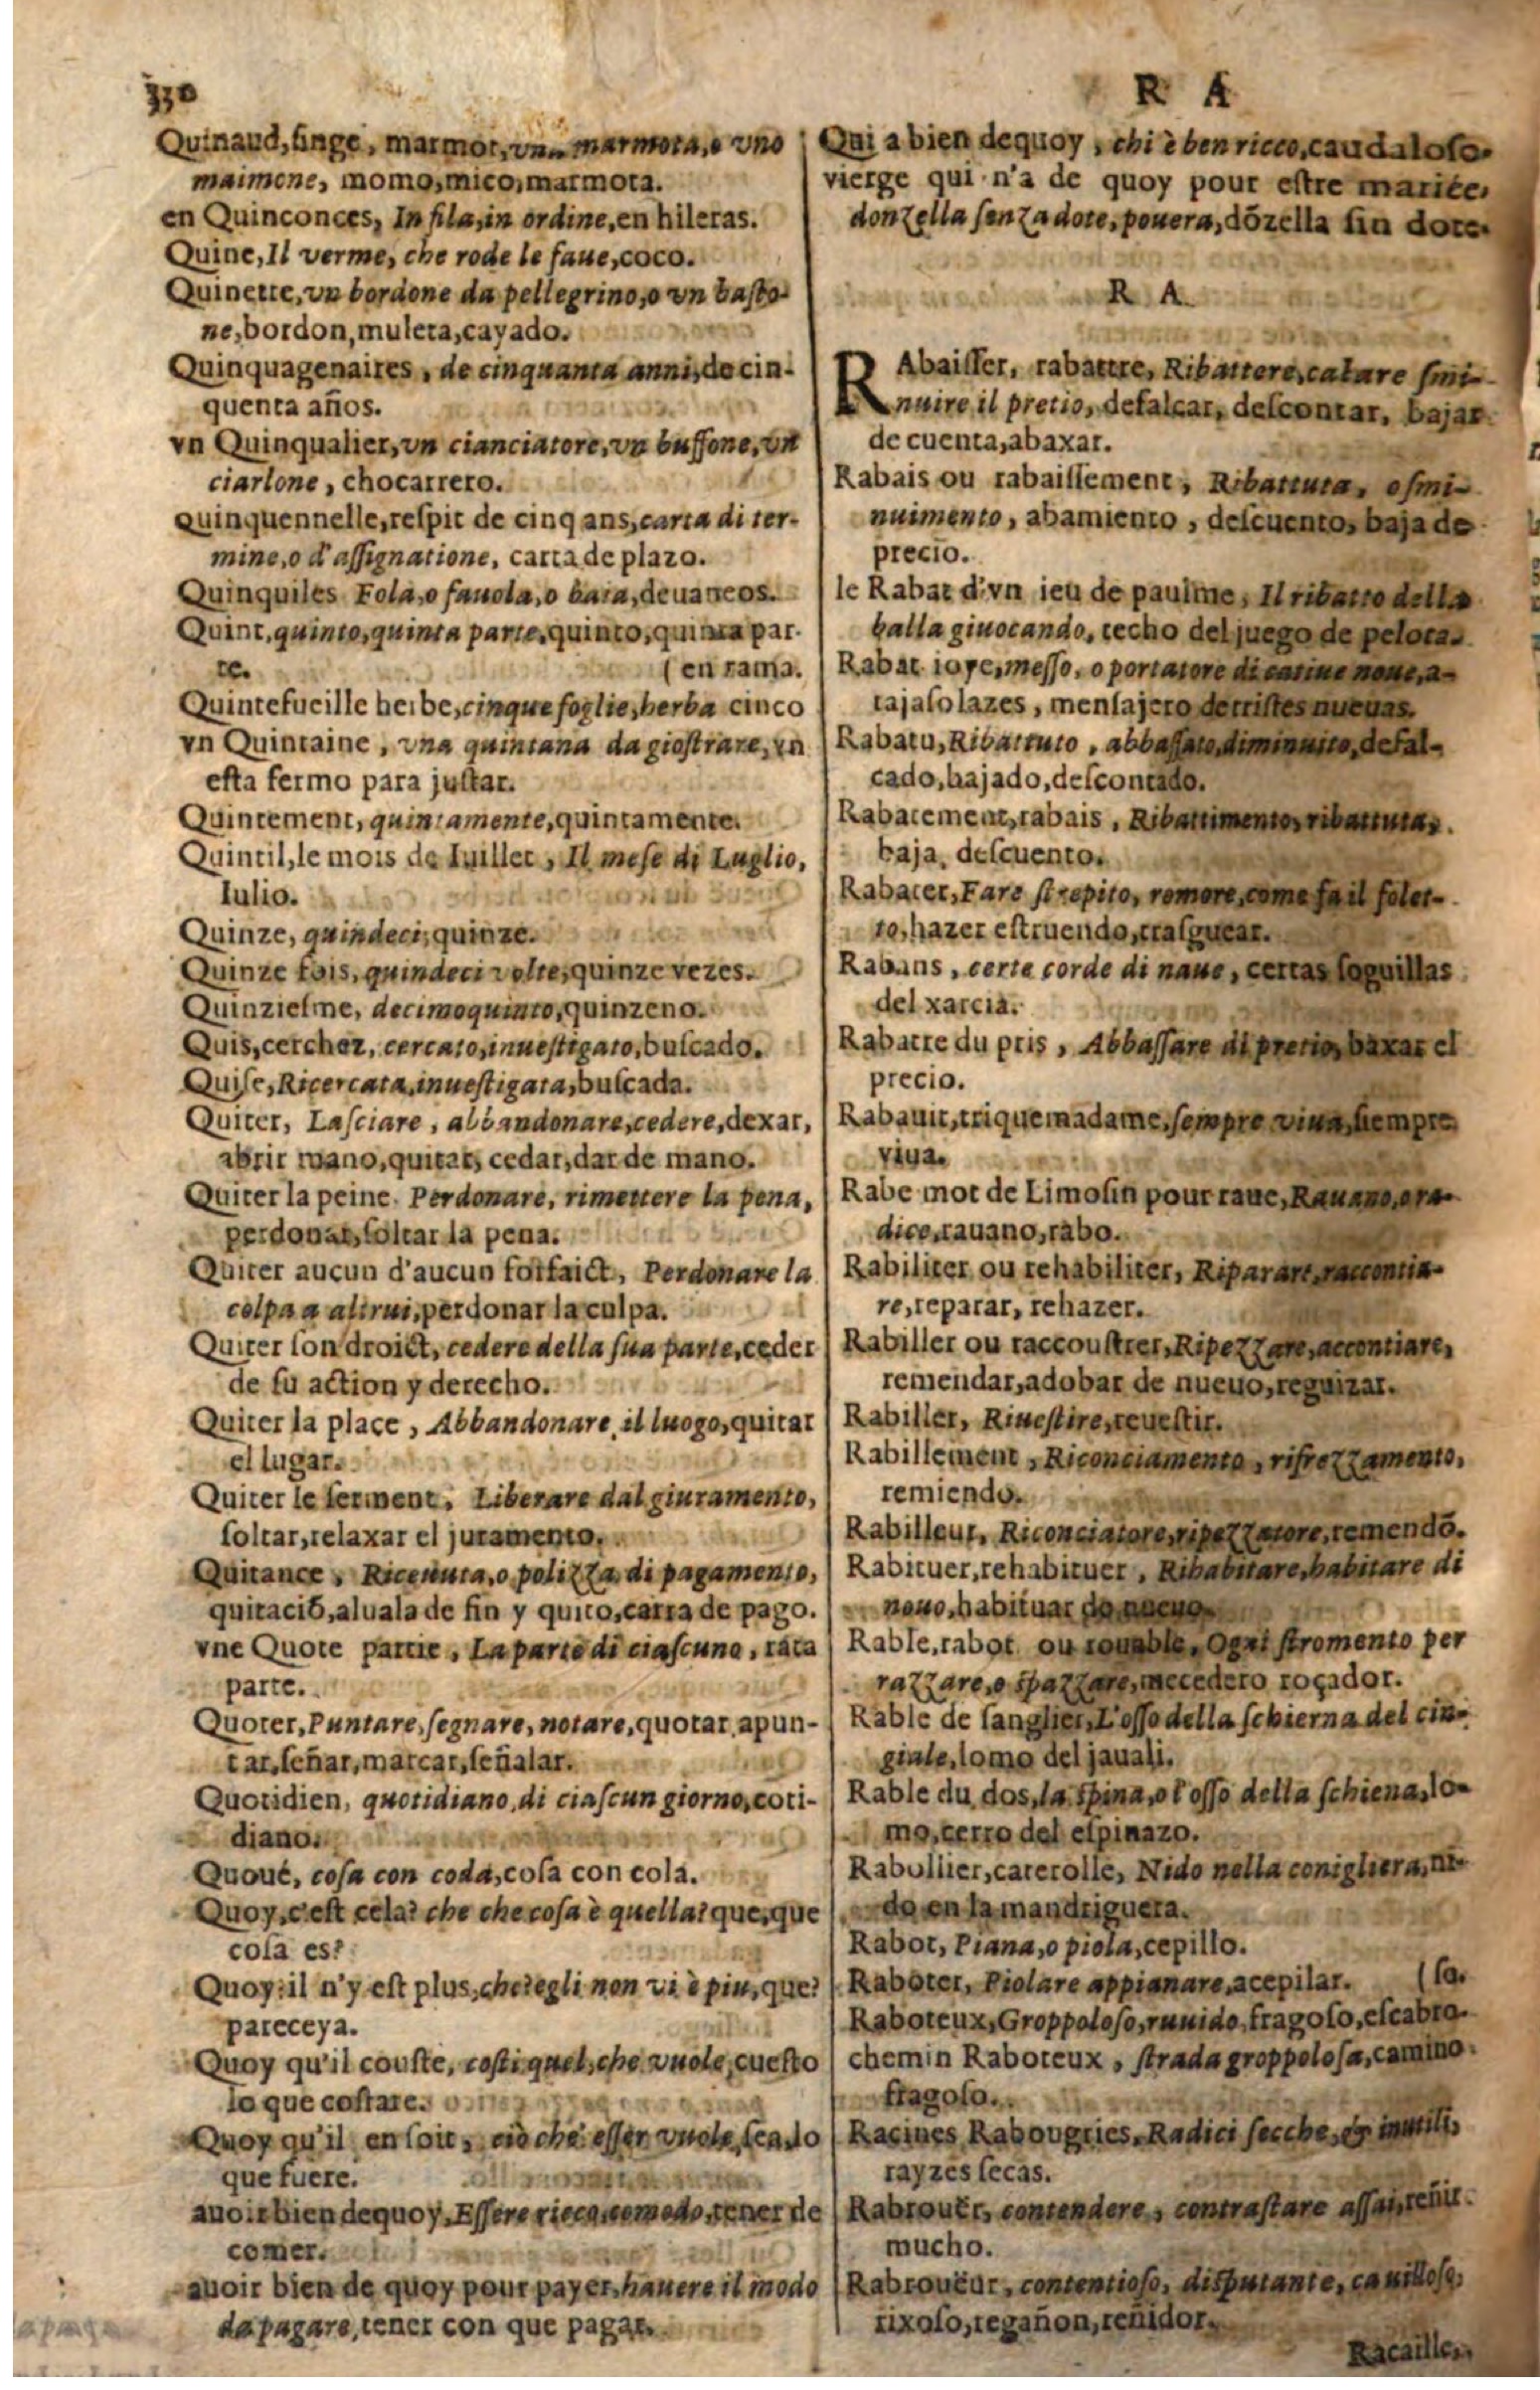 330
R A
Quinaud, singe, marmot, vna marmota, o vno
maimone, momo, mico, marmota.
en Quinconces, In fila, in ordine, en hileras.
Quine, Il verme, che rode le faue, coco.
Quinette, vn bordone da pellegrino, o vn basto-
ne, bordon, muleta, cayado.
Quinquagenaires, de cinquanta anni, de cin-
quenta años.
vn Quinqualier, vn cianciatore, vn buffone, vn
ciarlone, chocarrero.
quinquennelle, respit de cinq ans, carta di ter-
mine, o d'assignatione, carta de plazo.
Quinquiles Fola, o fauola, o baia, deuaneos.
Quint, quinto, quinta parte, quinto, quinta par-
te.
(en rama.
Quintefueille herbe, cinque foglie, herba cinco
vn Quintaine, vna quintana da giostrare, vn
esta fermo para justar.
Quintement, quintamente, quintamente.
Quintil, le mois de Iuillet, Il mese di Luglio,
Iulio.
Quinze, quindeci, quinze.
Quinze fois, quindeci volte, quinze vezes.
Quinziesme, decimoquinto, quinzeno.
Quis, cerchez, cercato, inuestigato, buscado.
Quise, Ricercata, inuestigata, buscada.
Quiter, Lasciare, abbandonare, cedere, dexar,
abrir mano, quitar, cedar, dar de mano.
Quiter la peine. Perdonare, rimettere la pena,
perdonar, soltar la pena.
Quiter aucun d'aucun forfaict, Perdonare la
colpa a altrui, perdonar la culpa.
Quiter son droict, cedere della sua parte, ceder
de su action y derecho.
Quiter la place, Abbandonare il luogo, quitar
el lugar.
Quiter le serment, Liberare dal giuramento,
soltar, relaxar el juramento.
Quitance, Riceuuta, o polizza di pagamento,
quitaciõ, aluala de fin y quito, carta de pago.
vne Quote partie, La parte di ciascuno, rata
parte.
Quoter, Puntare, segnare, notare, quotar, apun-
tar, señar, marcar, señalar.
Quotidien, quotidiano, di ciascun giorno, coti-
diano.
Quoué, cosa con coda, cosa con cola.
Quoy, c'est cela? che che cosa è quella? que, que
cosa es?
Quoy: il n'y est plus, che? egli non vi è piu, que?
pareceya.
Quoy qu'il couste, costi quel, che vuole, cuesto
lo que costare.
Quoy qu'il en soit, ciò che esser vuole, sea lo
que fuere.
auoir bien dequoy, Essere ricco, comodo, tener de
comer.
auoir bien de quoy pour payer, hauere il modo
da pagare, tener con que pagar.
Qui a bien dequoy, chi è ben ricco, caudaloso.
vierge qui n'a de quoy pour estre mariée,
donzella senza dote, pouera, dõzella sin dote.
R A.
RAbaisser, rabattre, Ribattere, calare smi-
nuire il pretio, defalcar, descontar, bajar
de cuenta, abaxar.
Rabais ou rabaissement, Ribattuta, o smi-
nuimento, abamiento, descuento, baja de
precio.
le Rabat d'vn ieu de paulme, Il ribatto della
balla giuocando, techo del juego de pelota.
Rabat ioye, messo, o portatore di catiue noue, a-
tajasolazes, mensajero de tristes nueuas.
Rabatu, Ribattuto, abbassato, diminuito, defal-
cado, bajado, descontado.
Rabatement, rabais, Ribattimento, ribattuta,
baja, descuento.
Rabater, Fare strepito, romore, come fa il folet-
to, hazer estruendo, trasguear.
Rabans, certe corde di naue, certas soguillas
del xarcia.
Rabatre du pris, Abbassare di pretio, baxar el
precio.
Rabauit, triquemadame, sempre viua, siempre
viua.
Rabe mot de Limosin pour raue, Rauano, o ra-
dice, rauano, rabo.
Rabiliter ou rehabiliter, Riparare, raccontia-
re, reparar, rehazer.
Rabiller ou raccoustrer, Ripezzare, accontiare,
remendar, adobar de nueuo, reguizar.
Rabiller, Riuestire, reuestir.
Rabillement, Riconciamento, rifrezzamento,
remiendo.
Rabilleur, Riconciatore, ripezzatore, remendõ.
Rabituer, rehabituer, Rihabitare, habitare di
nouo, habituar de nueuo.
Rable, rabot ou rouable, Ogni stromento per
razzare, o spazzare, mecedero roçador.
Rable de sanglier, L'osso della schierna del cin-
giale, lomo del jauali.
Rable du dos, la spina, o l'osso della schiena, lo-
mo, cerro del espinazo.
Rabollier, caterolle, Nido nella conigliera, ni-
do en la mandriguera.
Rabot, Piana, o piola, cepillo.
Raboter, Piolare appianare, acepilar.
(so.
Raboteux, Groppoloso, ruuido, fragoso, escabro-
chemin Raboteux, strada groppolosa, camino
fragoso.
Racines Rabougries, Radici secche, & inutili,
rayzes secas.
Rabrouër, contendere, contrastare assai, reñir
mucho.
Rabrouëur, contentioso, disputante, cauilloso,
rixoso, regañon, reñidor.
Racaille,